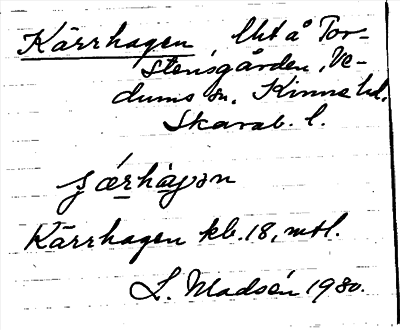 Kärrhagen, Mt å Tor-
stensgården, Ve-
dums sn, Kinne hd.
Skarab. l.
Kärrhagen kb. 18, mtl.
L. Madsén 1980.